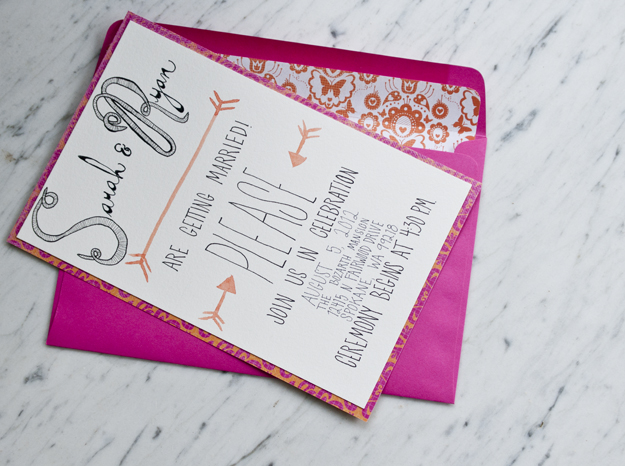 Sarah & Ryan
ARE GETTING MARRIED!
PLEASE
JOIN US IN CELEBRATION
AUGUST 5, 2012
THE BOZARTH MANSION
12415 N FAIRWOOD DRIVE
SPOKANE WA 99218
CEREMONY BEGINS AT 4:30 PM.